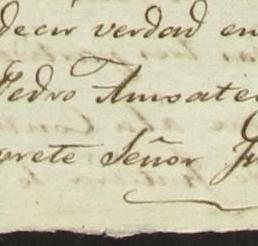 decir verdad en
Pedro Amoate
prete Señor Ju